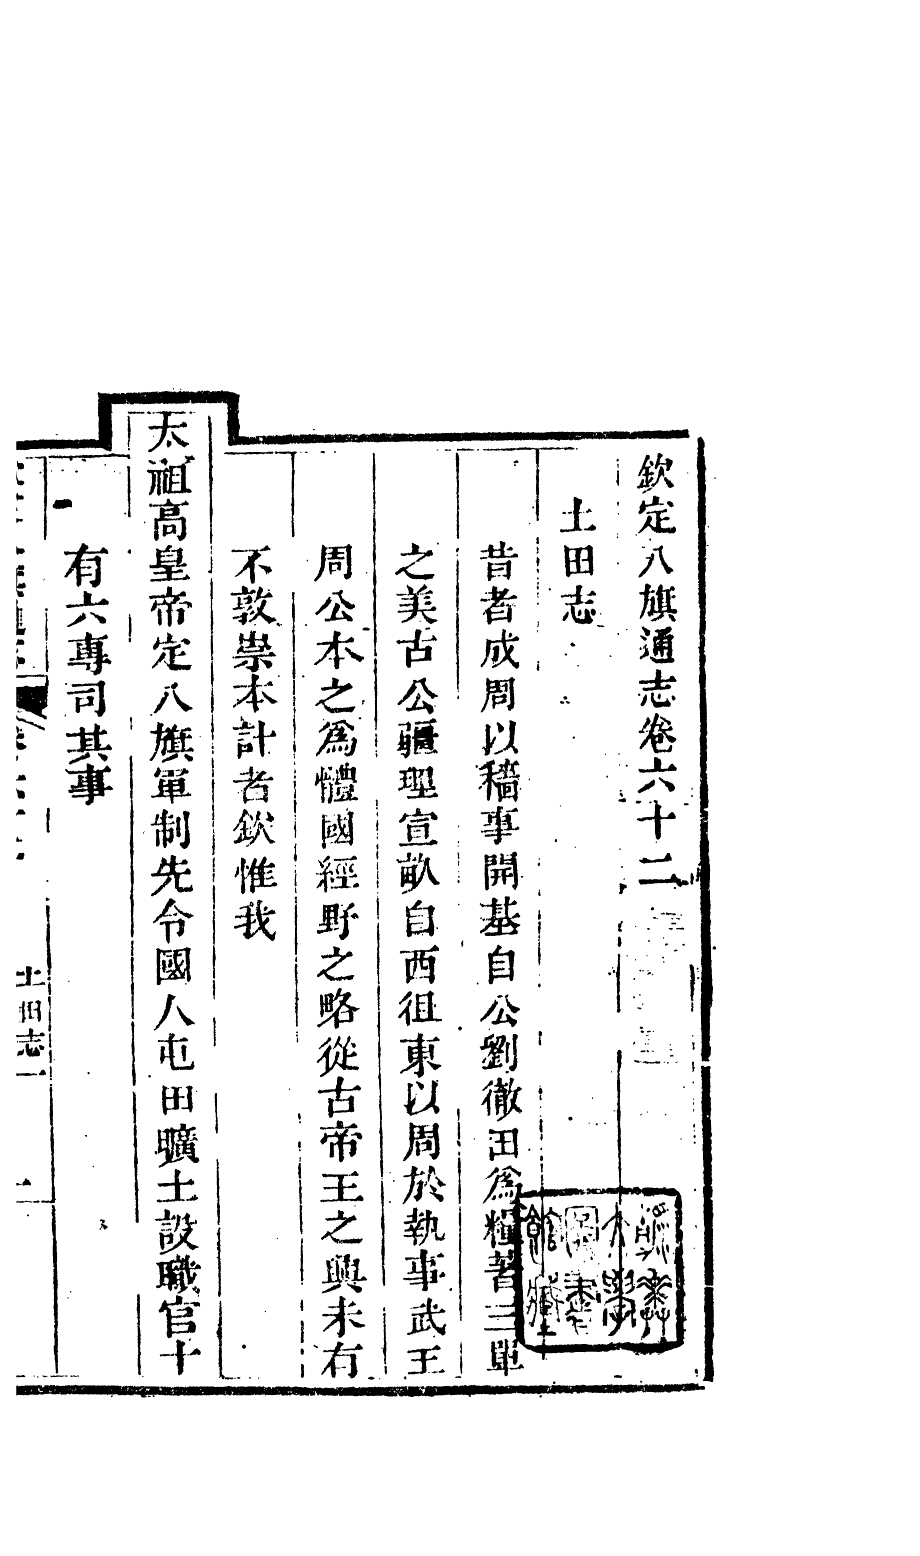 欽定八旗通志卷六十二
土田志
昔者成周以穡事開基自公劉徹田爲糧著三單
之美古公疆理宣畝自西徂東以周於執事武王
周公本之爲體國經野之略從古帝王之興未有
不敦崇本計者欽惟我
太祖高皇帝定八旗軍制先令國人屯田曠土設職官十
有六專司其事
土田志一